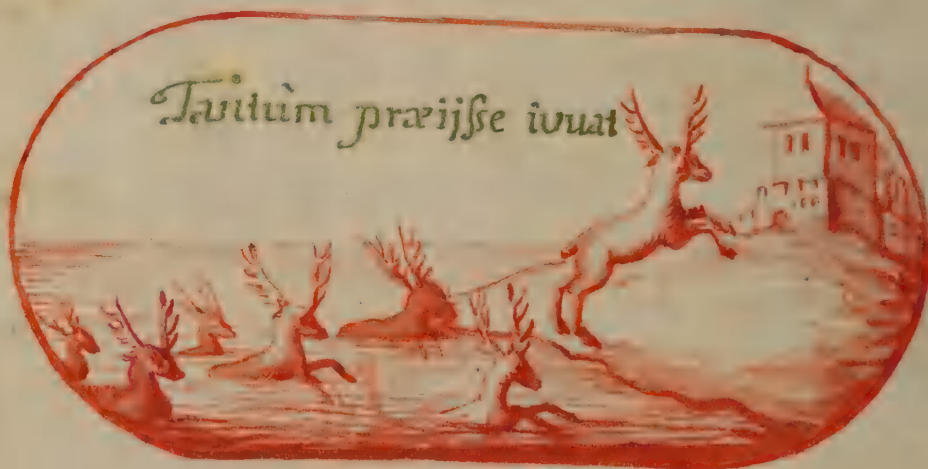 Tantùm præijsse iuuat